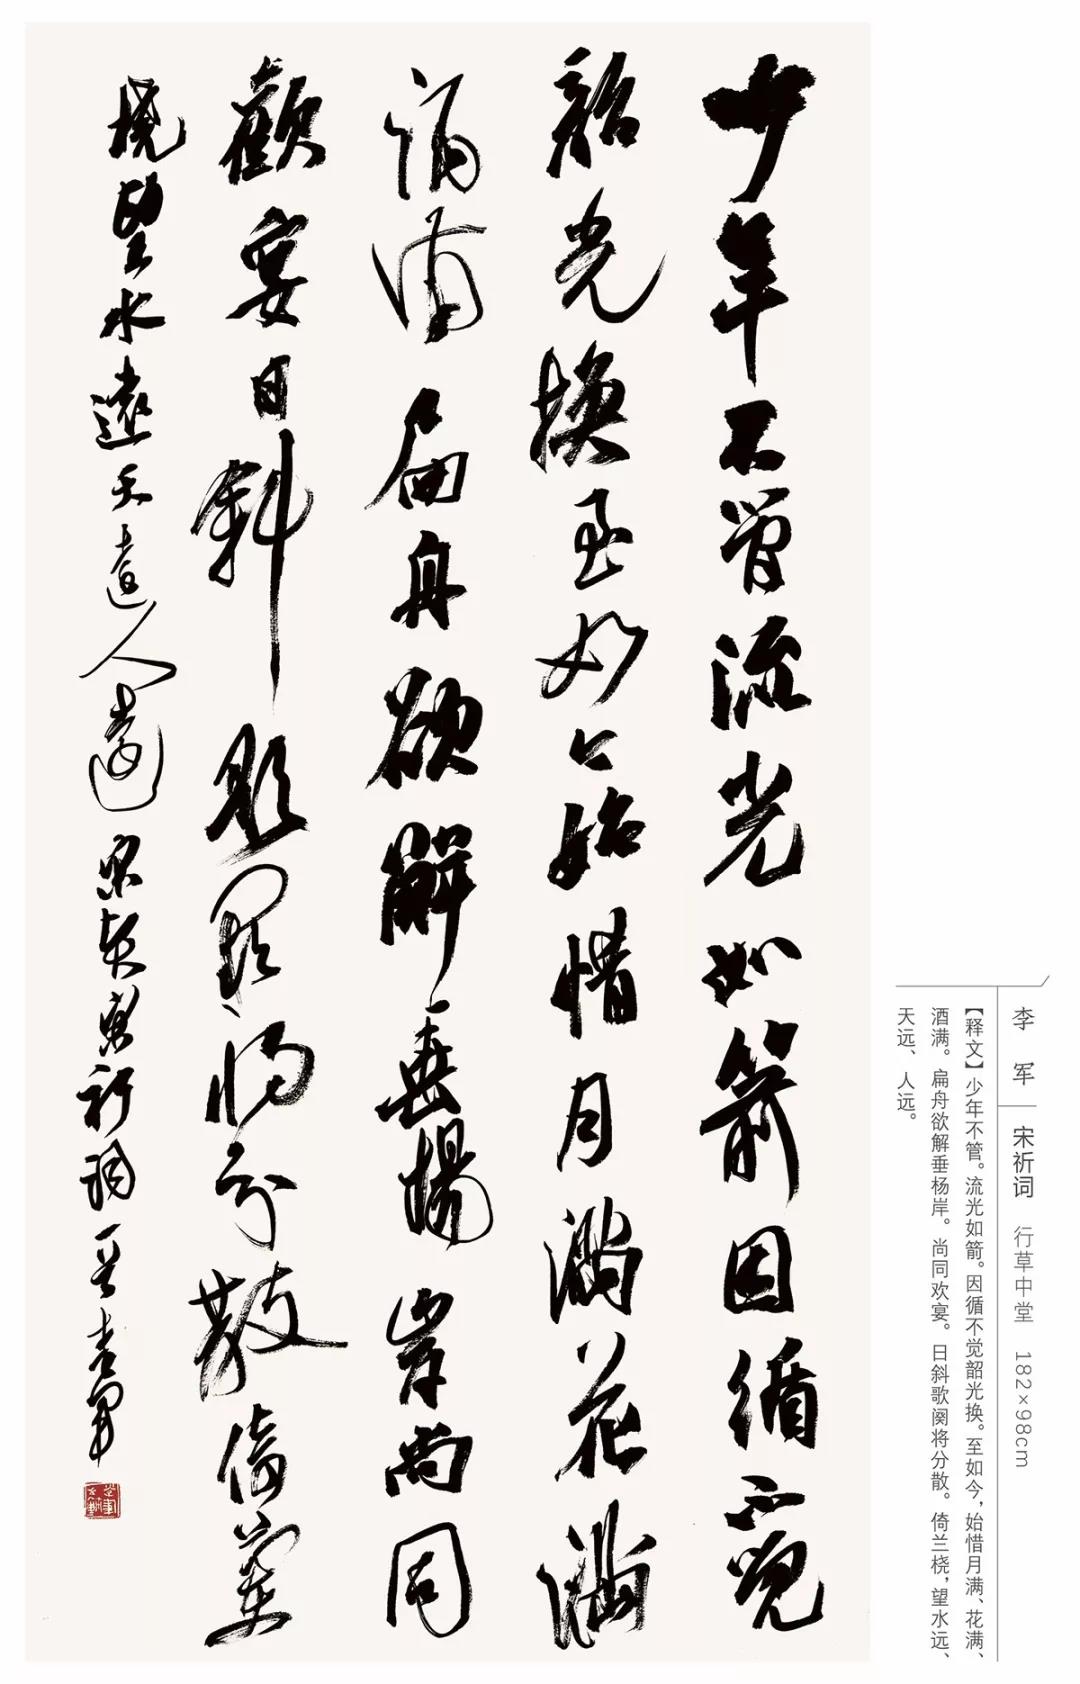 少年不管流光如箭因循不覺
韶光換至如今始惜月滿花滿
酒滿扁舟欲解垂楊岸尚同
歡宴日斜歌闋將分散倚蘭
橈望水遠天遠人遠 宋祁詞 李軍
李军 宋祁词 行草中堂 182×98cm
【释文】少年不管。流光如箭。因循不觉韶光换。至如今，始惜月满、花满、
酒满。扁舟欲解垂杨岸。尚同欢宴。日斜歌阕将分散。倚兰桡，望水远、
天远、人远。